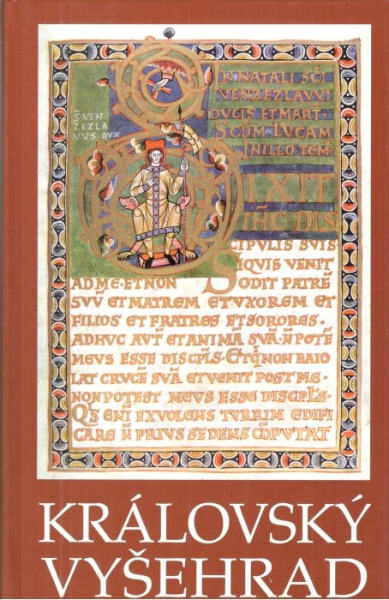 IN NATALI SCI
VENZEZLAVVI
DVCIS ET MART
SCDM LVCAM
IN ILLO TEM
DIXIT
IHC DIS
CIPULIS SUIS
SIQVIS VENIT
AD ME · ET NON ODIT PATRĒ
SVV̄ ET MATREM ET VXOREM ET
FILIOS ET FRATRES ET SORORES ·
ADHVC AVT̄ ET ANIMĀ SVĀ · N̄ POTĒ
MEVS ESSE DISCPLS · ET Q̄ NON BAIO
LAT CRVCĒ SVĀ ET VENIT POST ME ·
NON POTEST MEVS ESSE DISCPLS ·
QS ENĪ EX VOLENS TVRRIM EDIFI
CARE N̄ PRIUS SEDENS CŌPVTAT
KRÁLOVSKÝ
VYŠEHRAD